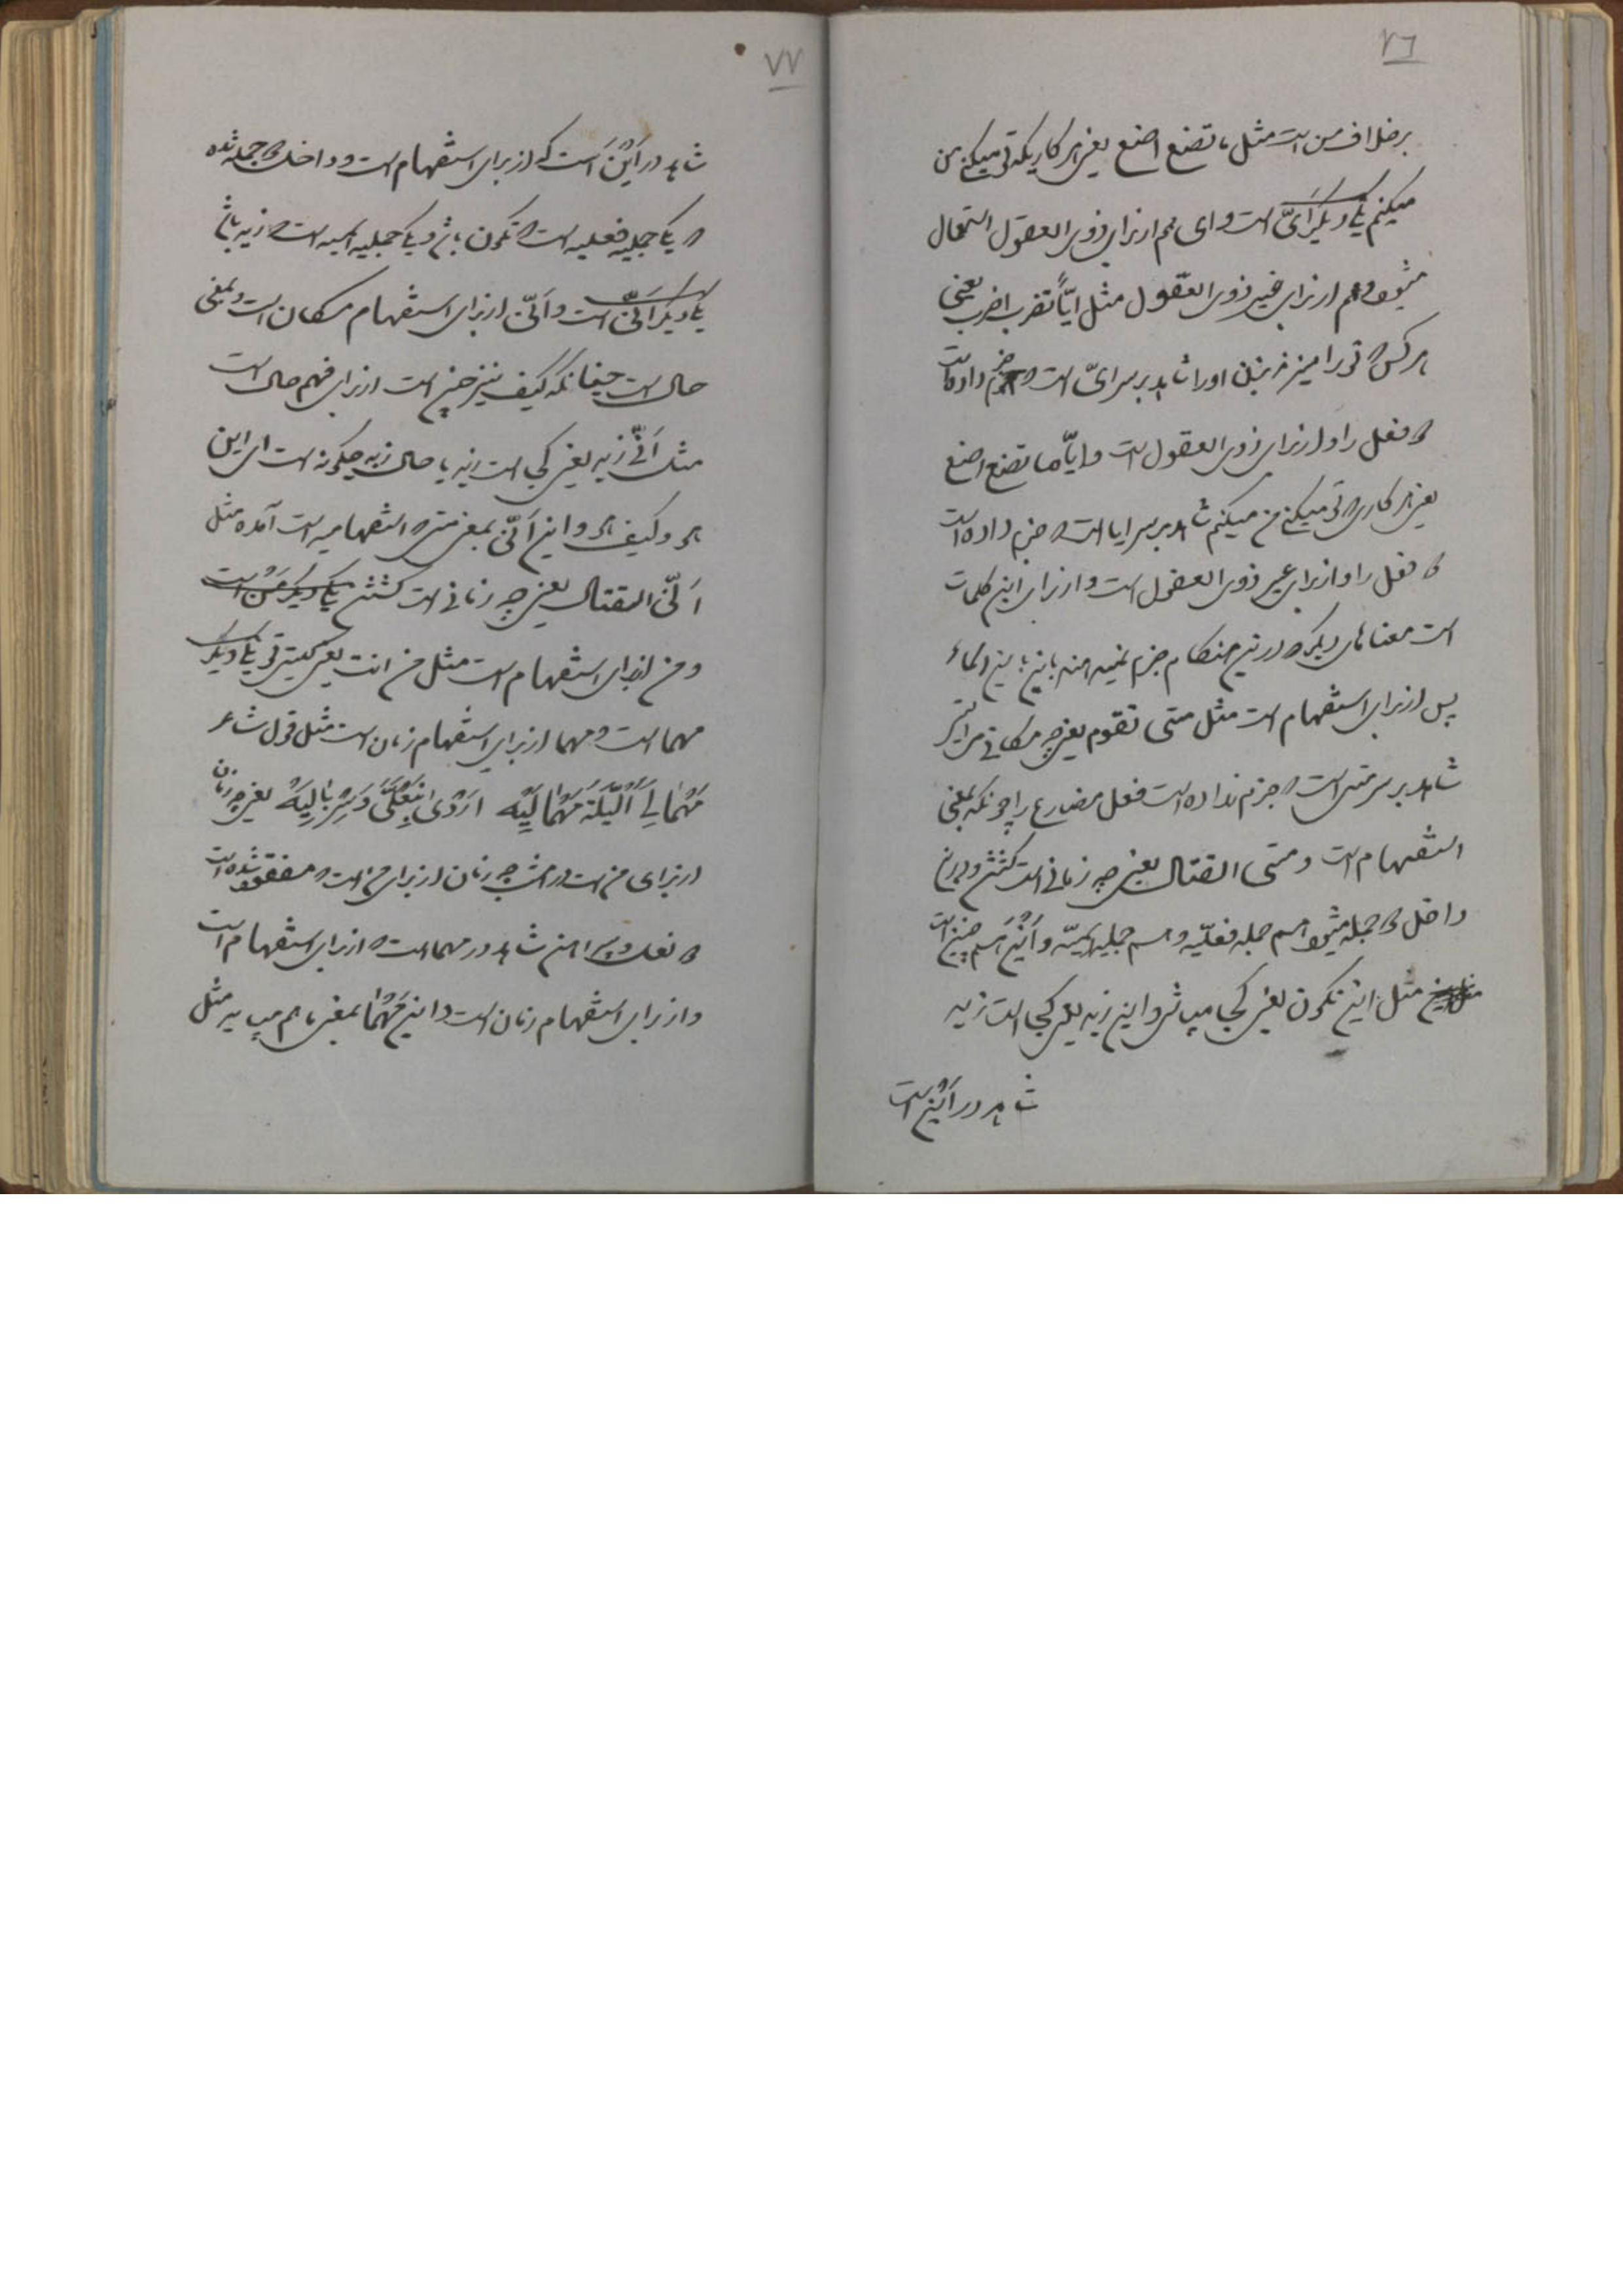 ٧٦
برخلاف من است مثل ما تصنع اصنع یعنی هر کاریکه تو میکنی من
میکنم یکی دیگر ایّ است و ای هم از برای ذوی العقول استعمال
میشود و هم از برای غیر ذوی العقول مثل ایّاً تضرب اضرب یعنی
هر کس که تو را میزنی من بزنم او را شاهد بر سر ایّ است که جزم داده است
که فعل را و از برای ذوی العقول است و ایّاً ما تصنع اصنع
یعنی هر کاری که تو میکنی من میکنم شاهد بر سر ایا است که جزم داده است
که فعل را و از برای غیر ذوی العقول است و از برای این کلمات
است معناهای دیگر که در این هنگام جزم نمیدهند
پس از برای استفهام است مثل متی تقوم یعنی چه مکانی
شاهد بر سر متی است که جزم نداده است فعل مضارع را چونکه بمعنی
استفهام است و متی القتال یعنی چه زمانی است کشتن و
داخل که جمله میشود هم جمله فعلیّه و هم جملیه اسمیّه و أین هم چنین است
مثل این تکون یعنی کجا میباشی و این زید یعنی کجا است زید
شاهد در أین است
٧٧
شاهد در أین است که از برای استفهام است و داخل که جمله شده
که یکی جملیه فعلیه است که تکون باشد و یکی جملیه اسمیه است که زید باشد
یکی دیگر أنّی است و أنّی از برای استفهام مکان است و بمعنی
حال است چنانکه کیف نیز چنین است از برای فهم حال است
مثل أنّی زید یعنی کجا است زید یا حال زید چگونه است ای این
هو و کیف هو و این أنّی بمعنی متی که استفهامیه است آمده مثل
أنّی القتال یعنی چه زمانی است کشتن یکی دیگر من است
و من از برای استفهام است مثل من انت یعنی کیستی تو یکی دیگر
مهما است و مهما از برای استفهام زمان است مثل قول شاعر
مَهْمَا لِیَ اللَّیْلَةَ مَهْمَا لِیَه اَوْدَی بِنَعْلَیَّ وَ سِرْبَالِیَهْ یعنی چه زمان
از برای من است در امشب چه زمان از برای من است که مفقود شده است
که نعل و پیراهن شاهد در مهما است که از برای استفهام است
و از برای استفهام زمان است و این مَهْمَا بمعنی ما هم میاید مثل